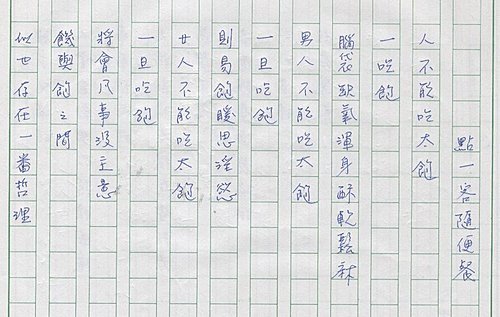 點一客隨便餐
人不能吃太飽
一吃飽
腦袋缺氧渾身酥軟鬆麻
男人不能吃太飽
一旦吃飽
則易飽暖思淫慾
女人不能吃太飽
一旦吃飽
將會凡事沒主意
飢與飽之間
似也存在一番哲理